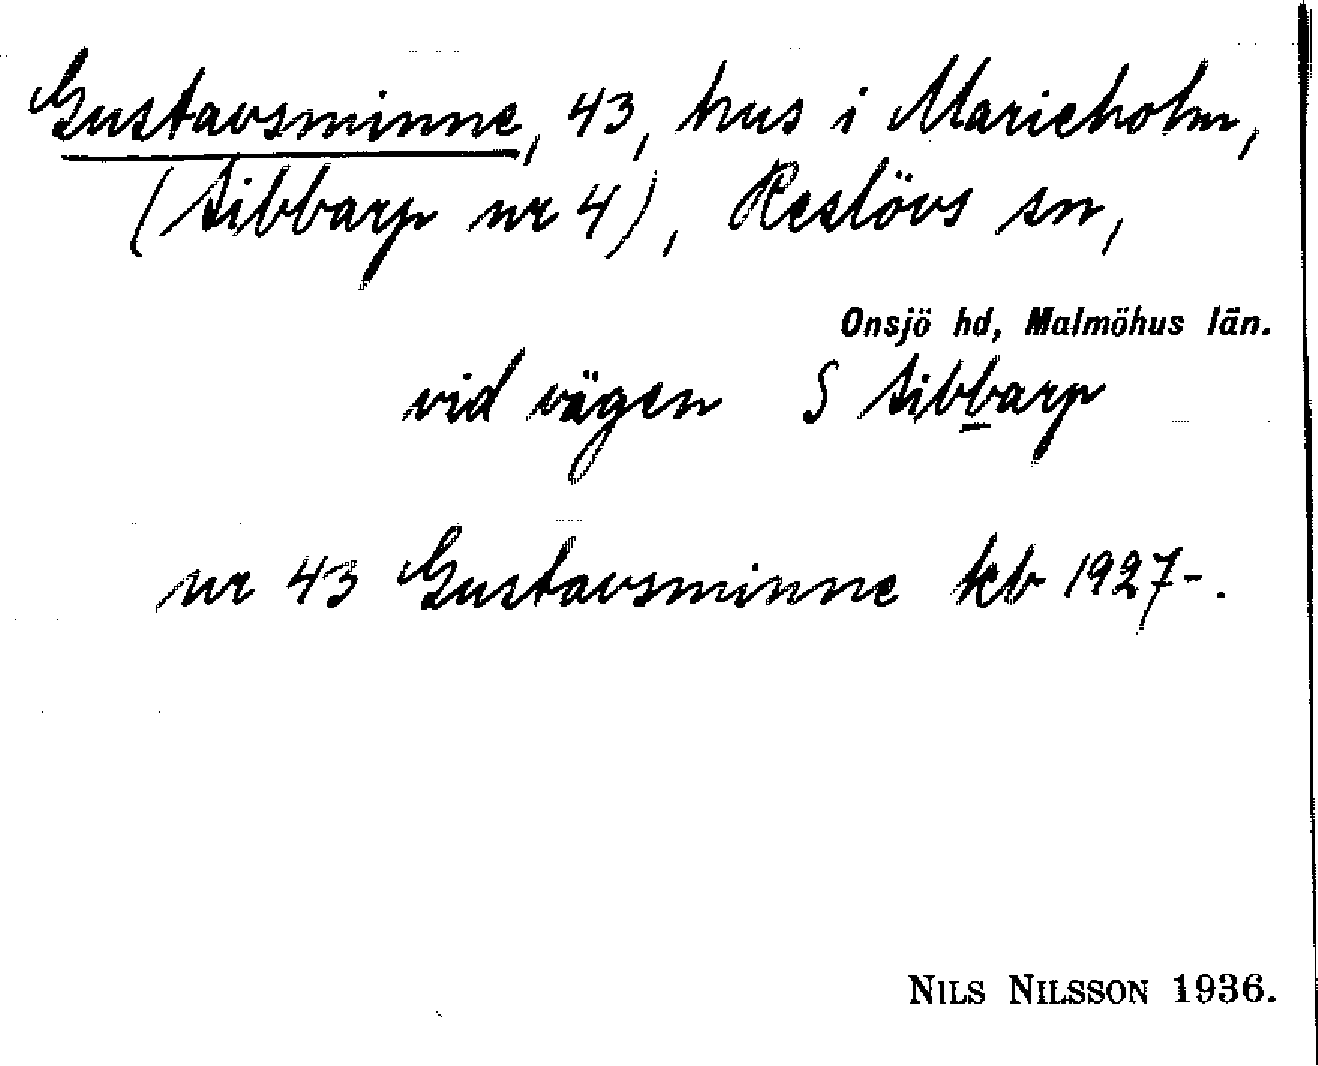 Gustavsminne, 43, hus i Marieholm,
(Sibbarp nr 4), Reslövs sn,
Onsjö hd, Malmöhus län.
vid vägen S Sibbarp
nr 43 Gustavsminne kb 1927-.
NILS NILSSON 1936.